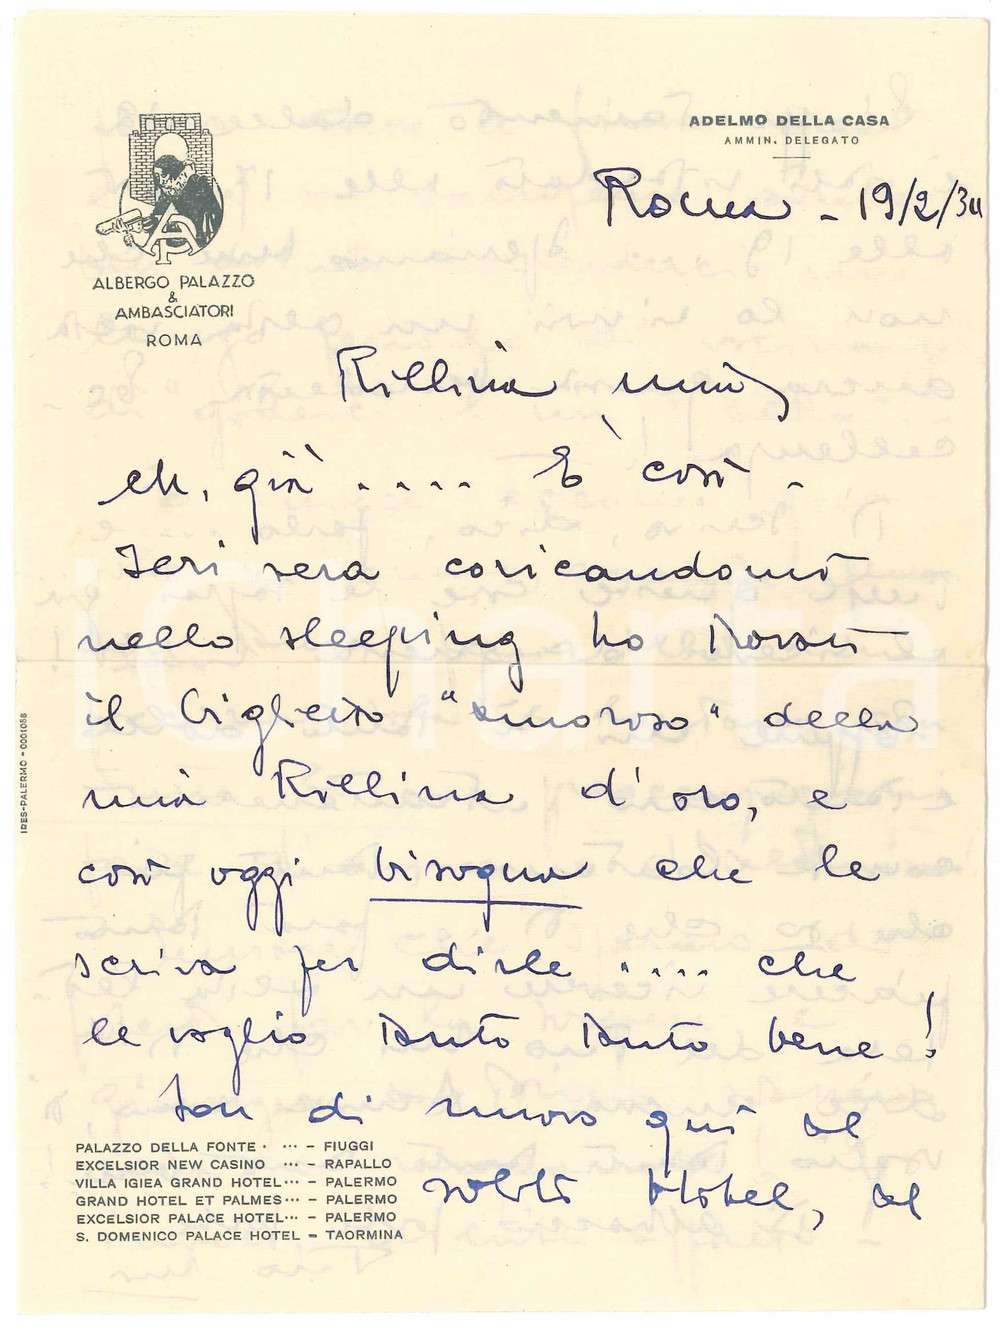 ADELMO DELLA CASA
AMMIN. DELEGATO
Roma - 19/2/34
ALBERGO PALAZZO
&
AMBASCIATORI
ROMA
Rillina mia,
eh, già .... È così -
Ieri sera coricandomi
nello sleeping ho trovato
il biglietto "amoroso" della
mia Rillina d'oro, e
così oggi bisogna che le
scriva per dirle .... che
le voglio tanto tanto bene!
Son di nuovo qui al
solito Hotel, al
PALAZZO DELLA FONTE · ··· – FIUGGI
EXCELSIOR NEW CASINO ··· – RAPALLO
VILLA IGIEA GRAND HOTEL ··· – PALERMO
GRAND HOTEL ET PALMES ··· – PALERMO
EXCELSIOR PALACE HOTEL ··· – PALERMO
S. DOMENICO PALACE HOTEL – TAORMINA
IRES-PALERMO - 0001058
iCharta